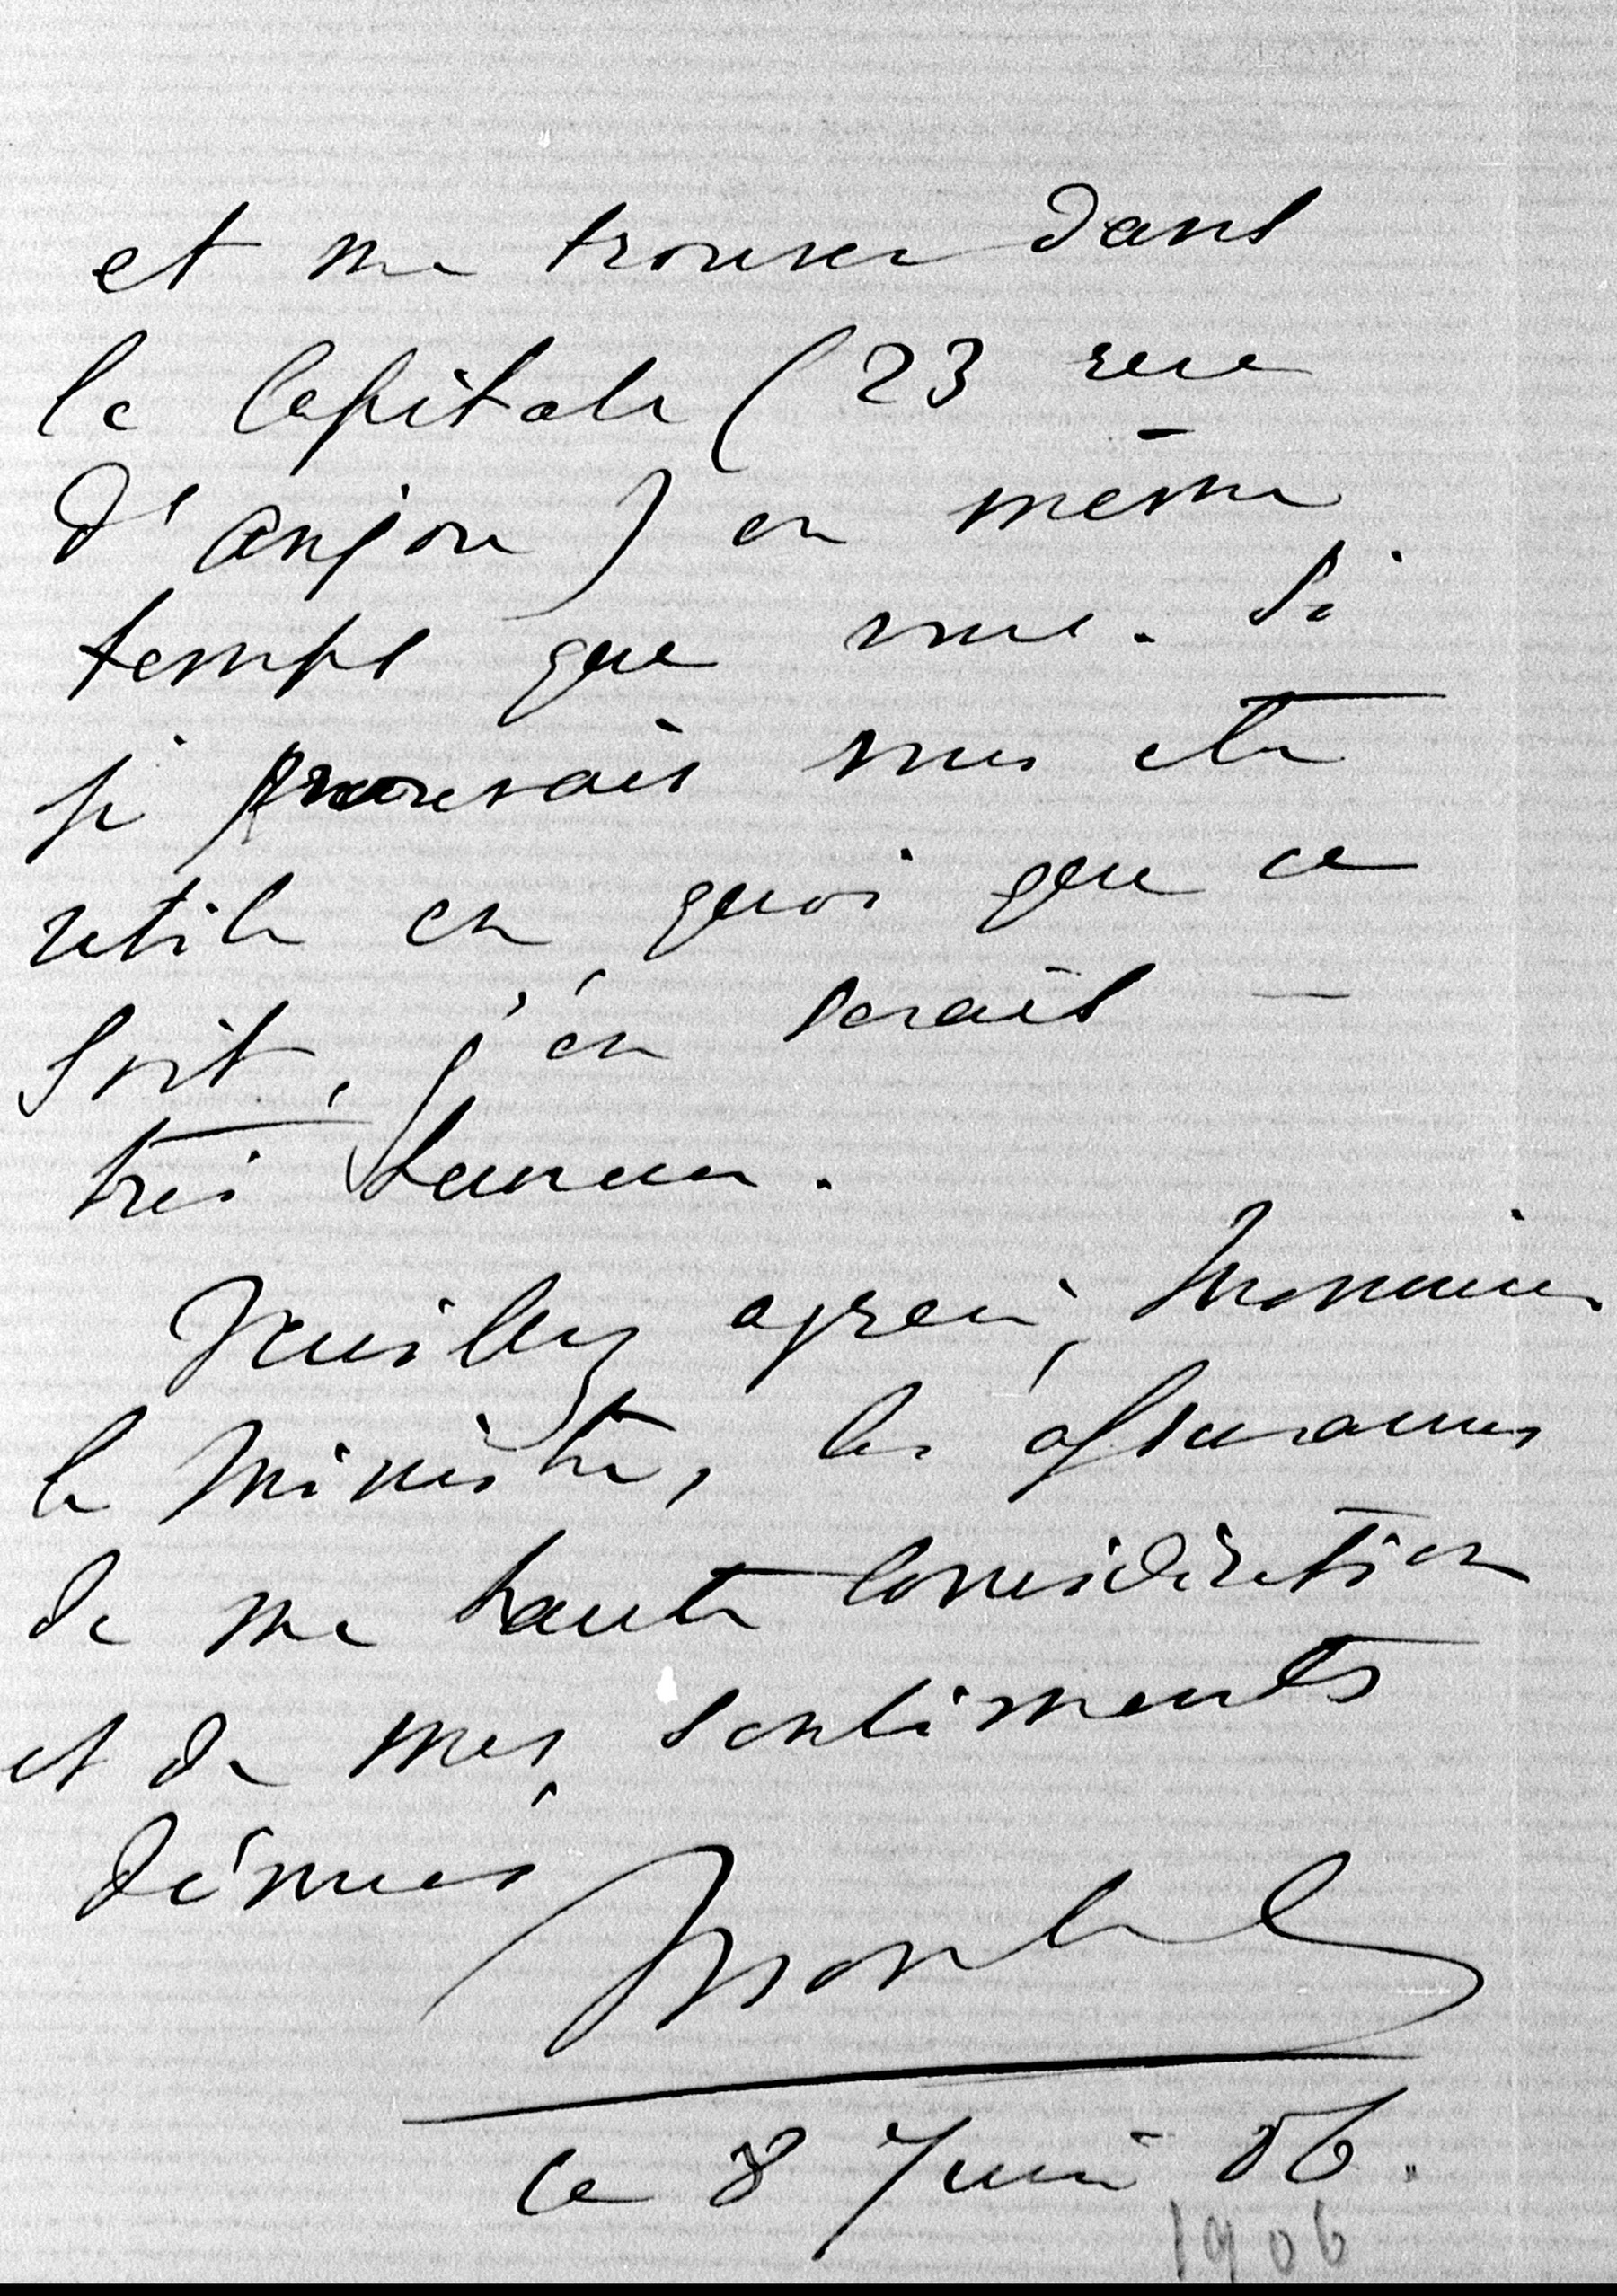 et me trouver dans
la Capitale (23 rue
d'anjou) en même
temps que vous. Si
je pouvais vous être
utile en quoi que ce
soit, j'en serais
très heureux.
Veuillez agréer, Monsieur
le Ministre, les assurances
de ma haute considération
et de mes sentiments
dévoués
ce 8 Juin 06.
1906